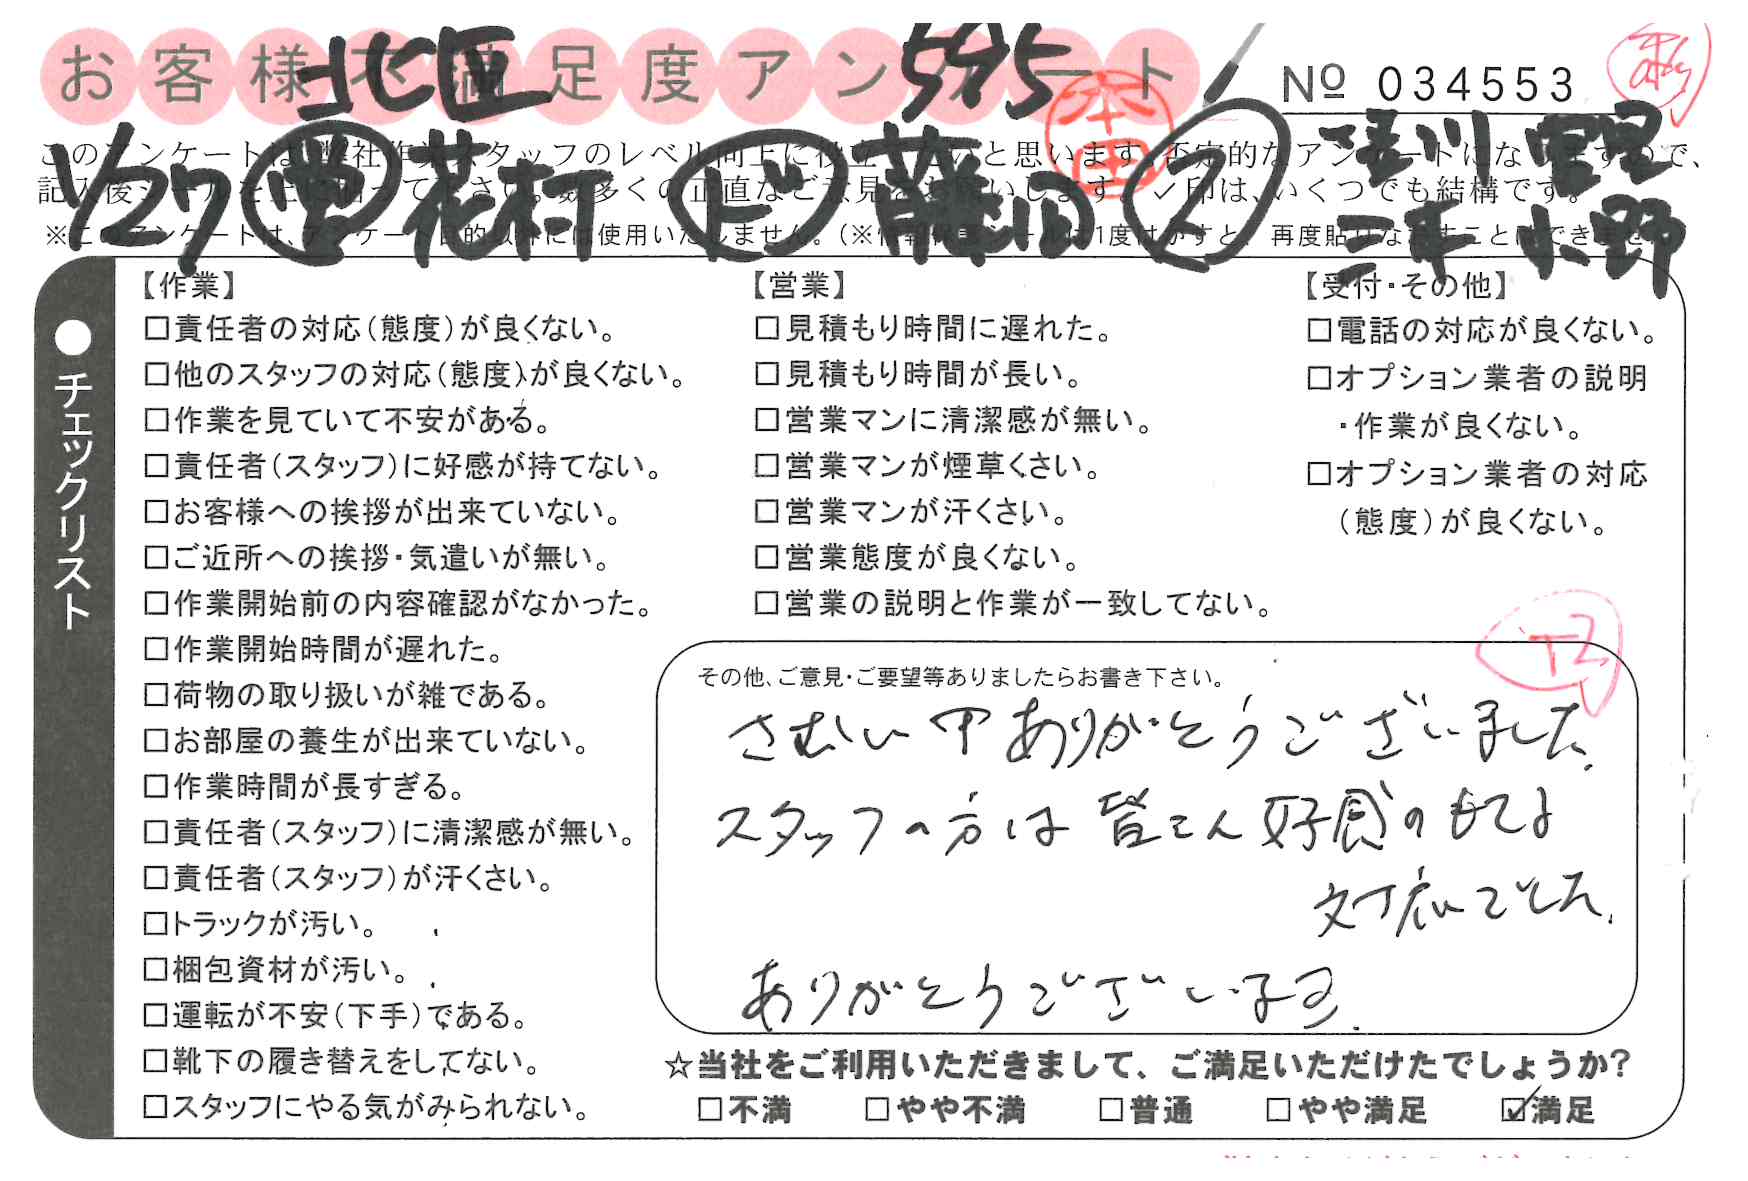 お客様不満足度アンケート
北区 595
№ 034553
本田
1/27 営 花村 ド 藤田 2
このアンケートは、弊社作業スタッフのレベル向上に役立てたいと思います。否定的なアンケートになりますので、
記入後シールを上に貼って下さい。数多くの正直なご意見をお願いします。✓印は、いくつでも結構です。
※このアンケートは、アンケート目的以外には使用いたしません。(※情報保護シールは1度はがすと、再度貼りなおすことはできません)
チェックリスト
【作業】
□責任者の対応(態度)が良くない。
□他のスタッフの対応(態度)が良くない。
□作業を見ていて不安がある。
□責任者(スタッフ)に好感が持てない。
□お客様への挨拶が出来ていない。
□ご近所への挨拶・気遣いが無い。
□作業開始前の内容確認がなかった。
□作業開始時間が遅れた。
□荷物の取り扱いが雑である。
□お部屋の養生が出来ていない。
□作業時間が長すぎる。
□責任者(スタッフ)に清潔感が無い。
□責任者(スタッフ)が汗くさい。
□トラックが汚い。
□梱包資材が汚い。
□運転が不安(下手)である。
□靴下の履き替えをしてない。
□スタッフにやる気がみられない。
【営業】
□見積もり時間に遅れた。
□見積もり時間が長い。
□営業マンに清潔感が無い。
□営業マンが煙草くさい。
□営業マンが汗くさい。
□営業態度が良くない。
□営業の説明と作業が一致してない。
【受付・その他】
□電話の対応が良くない。
□オプション業者の説明
・作業が良くない。
□オプション業者の対応
(態度)が良くない。
その他、ご意見・ご要望等ありましたらお書き下さい。
さむい中ありがとうございました。
スタッフの方は皆さん好感のもてる
対応でした。
ありがとうございます。
☆当社をご利用いただきまして、ご満足いただけたでしょうか?
□不満 □やや不満 □普通 □やや満足 ☑満足